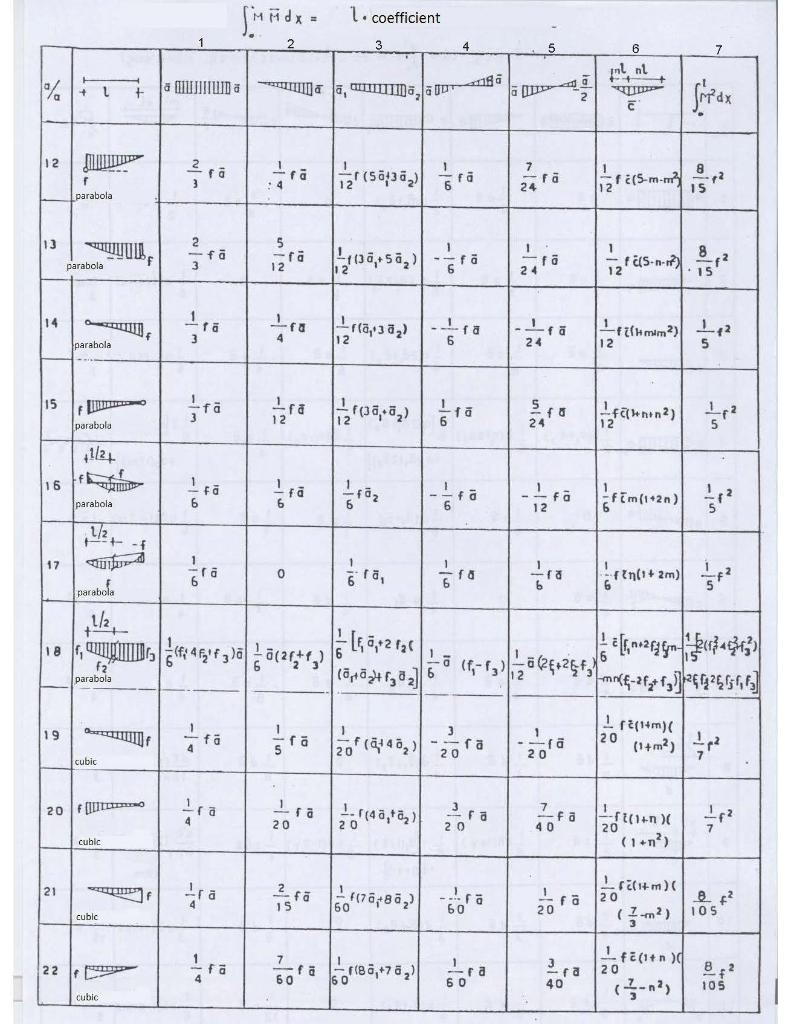 ∫₀ˡ M M̄ dx = l · coefficient
1 2 3 4 5 6 7
a/a l ā ā ā ā₁ ā₂ ā ā ā -ā/2 ml nl c̄ ∫₀ˡ M²dx
12 f parabola 2/3 f ā 1/4 f ā 1/12 f(5ā₁+3ā₂) 1/6 f ā 7/24 f ā 1/12 f c̄(5-m-m²) 8/15 f²
13 f parabola 2/3 f ā 5/12 f ā 1/12 f(3ā₁+5ā₂) -1/6 f ā 1/24 f ā 1/12 f c̄(5-n-n²) 8/15 f²
14 f parabola 1/3 f ā 1/4 f ā 1/12 f(ā₁+3ā₂) -1/6 f ā -1/24 f ā 1/12 f c̄(1+m+m²) 1/5 f²
15 f parabola 1/3 f ā 1/12 f ā 1/12 f(3ā₁+ā₂) 1/6 f ā 5/24 f ā 1/12 f c̄(1+n+n²) 1/5 f²
16 l/2 -f f parabola 1/6 f ā 1/6 f ā 1/6 f ā₂ -1/6 f ā -1/12 f ā 1/6 f c̄ m(1+2n) 1/5 f²
17 l/2 -f f parabola 1/6 f ā 0 1/6 f ā₁ 1/6 f ā 1/6 f ā 1/6 f c̄ n(1+2m) 1/5 f²
18 l/2 f₁ f₂ f₃ parabola 1/6 (f₁+4f₂+f₃)ā 1/6 ā(2f₂+f₃) 1/6 [f₁ā₁+2f₂( 1/6 ā (f₁-f₃) 1/12 ā(2f₁+2f₂-f₃) 1/6 c̄[f₁n+2f₂+f₃m- 1/15 [2(f₁²+4f₂²+f₃²)
(ā₁+ā₂)+f₃ā₂] -mn(f₁-2f₂+f₃)] +2f₁f₂+2f₂f₃-f₁f₃]
19 f cubic 1/4 f ā 1/5 f ā 1/20 f(ā₁+4ā₂) -3/20 f ā -1/20 f ā 1/20 f c̄(1+m)( 1/7 f²
(1+m²)
20 f cubic 1/4 f ā 1/20 f ā 1/20 f(4ā₁+ā₂) 3/20 f ā 7/40 f ā 1/20 f c̄(1+n)( 1/7 f²
(1+n²)
21 f cubic 1/4 f ā 2/15 f ā 1/60 f(7ā₁+8ā₂) -1/60 f ā 1/20 f ā 1/20 f c̄(1+m)( 8/105 f²
(7/3-m²)
22 f cubic 1/4 f ā 7/60 f ā 1/60 f(8ā₁+7ā₂) 1/60 f ā 3/40 f ā 1/20 f c̄(1+n)( 8/105 f²
(7/3-n²)